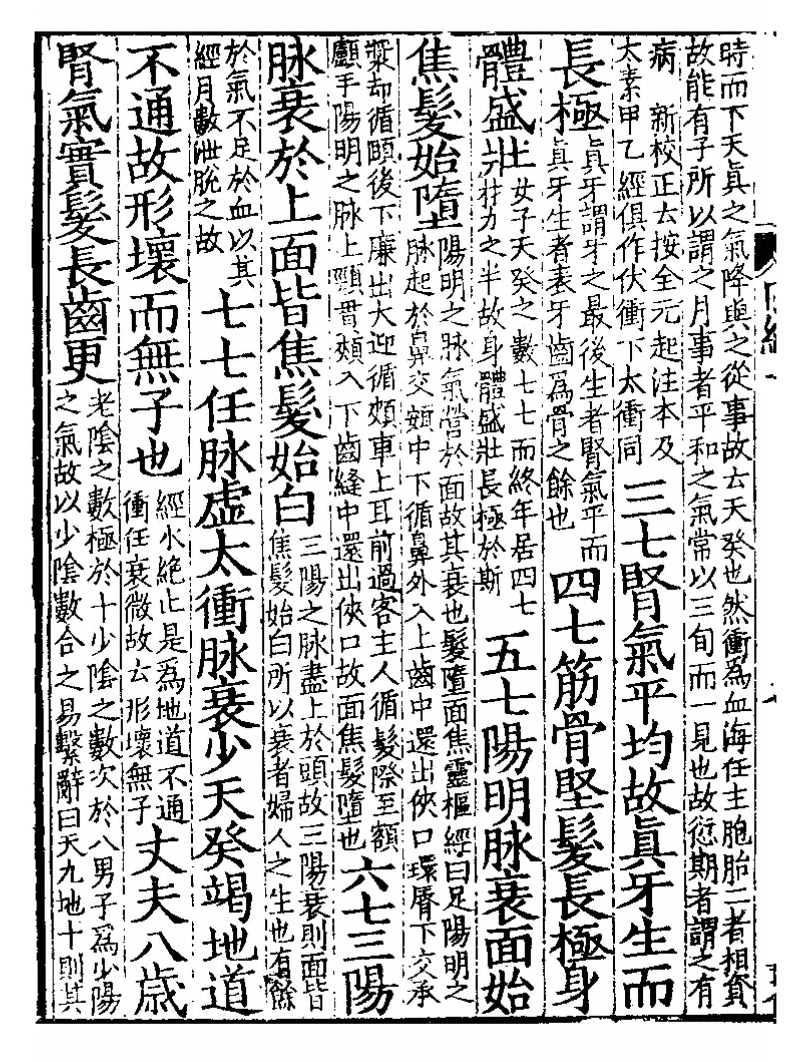 時而下天眞之氣降與之從事故云天癸也然衝為血海任主胞胎二者相資
故能有子所以謂之月事者平和之氣常以三旬而一見也故愆期者謂之有
病　新校正云按全元起注本及
太素甲乙經俱作伏衝下太衝同
三七腎氣平均故眞牙生而
長極
眞牙謂牙之最後生者腎氣平而
眞牙生者表牙齒爲骨之餘也
四七筋骨堅髮長極身
體盛壯
女子天癸之數七七而終年居四七
材力之半故身體盛壯長極於斯
五七陽明脉衰面始
焦髮始墮
陽明之脉氣營於面故其衰也髮墮面焦靈樞經曰足陽明之
脉起於鼻交頞中下循鼻外入上齒中還出俠口環脣下交承
漿却循頤後下廉出大迎循頰車上耳前過客主人循髮際至額
顱手陽明之脉上頸貫頰入下齒縫中還出俠口故面焦髮墮也
六七三陽
脉衰於上面皆焦髮始白
三陽之脉盡上於頭故三陽衰則面皆
焦髮始白所以衰者婦人之生也有餘
於氣不足於血以其
經月數泄脫之故
七七任脉虛太衝脉衰少天癸竭地道
不通故形壞而無子也
經水絶止是爲地道不通
衝任衰微故云形壞無子
丈夫八歳
腎氣實髮長齒更
老陰之數極於十少陰之數次於八男子爲少陽
之氣故以少陰數合之易繫辭曰天九地十則其